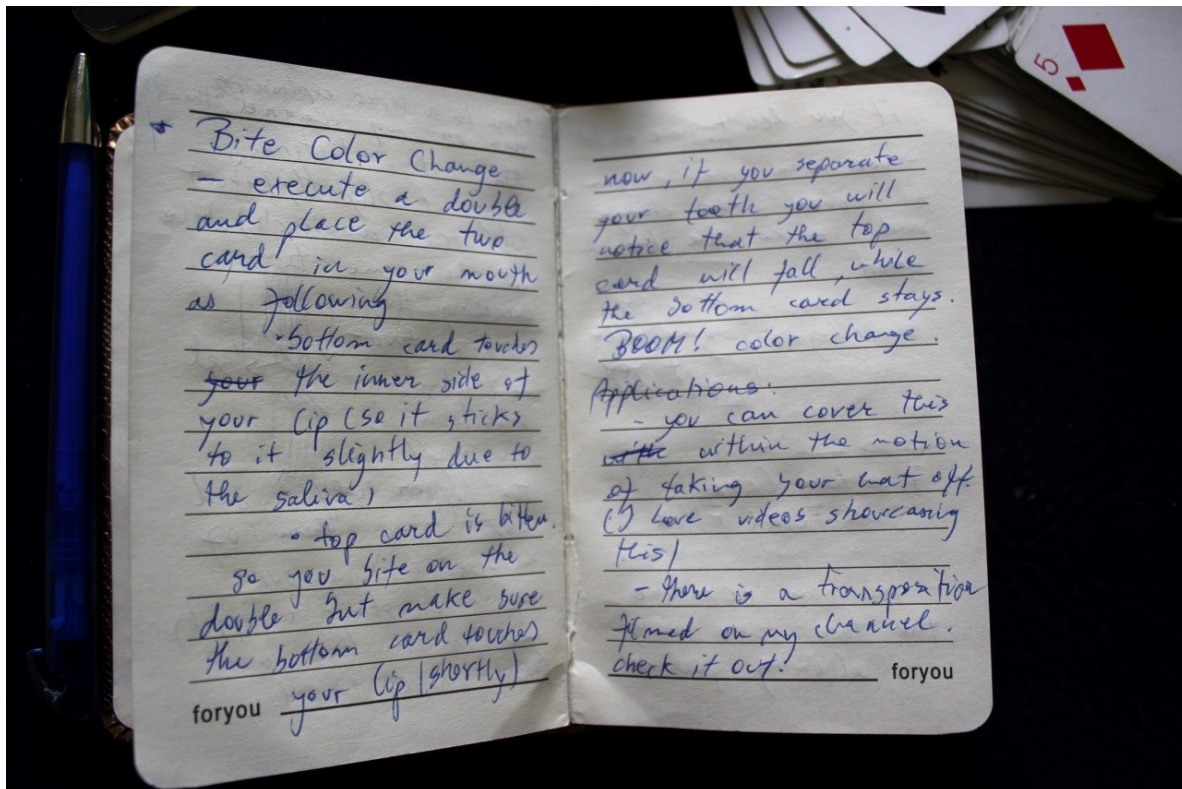 * Bite Color Change
— execute a double
and place the two
card in your mouth
as following
• bottom card touches
your the inner side of
your lip (so it sticks
to it slightly due to
the saliva)
• top card is bitten.
so you bite on the
double but make sure
the bottom card touches
your lip (shortly)
foryou
now, if you separate
your tooth you will
notice that the top
card will fall, while
the bottom card stays.
BOOM! color change.
Applications:
- you can cover this
with within the motion
of taking your hat off.
(I have videos showcasing
this)
- there is a transposition
filmed on my channel.
check it out!
foryou
5